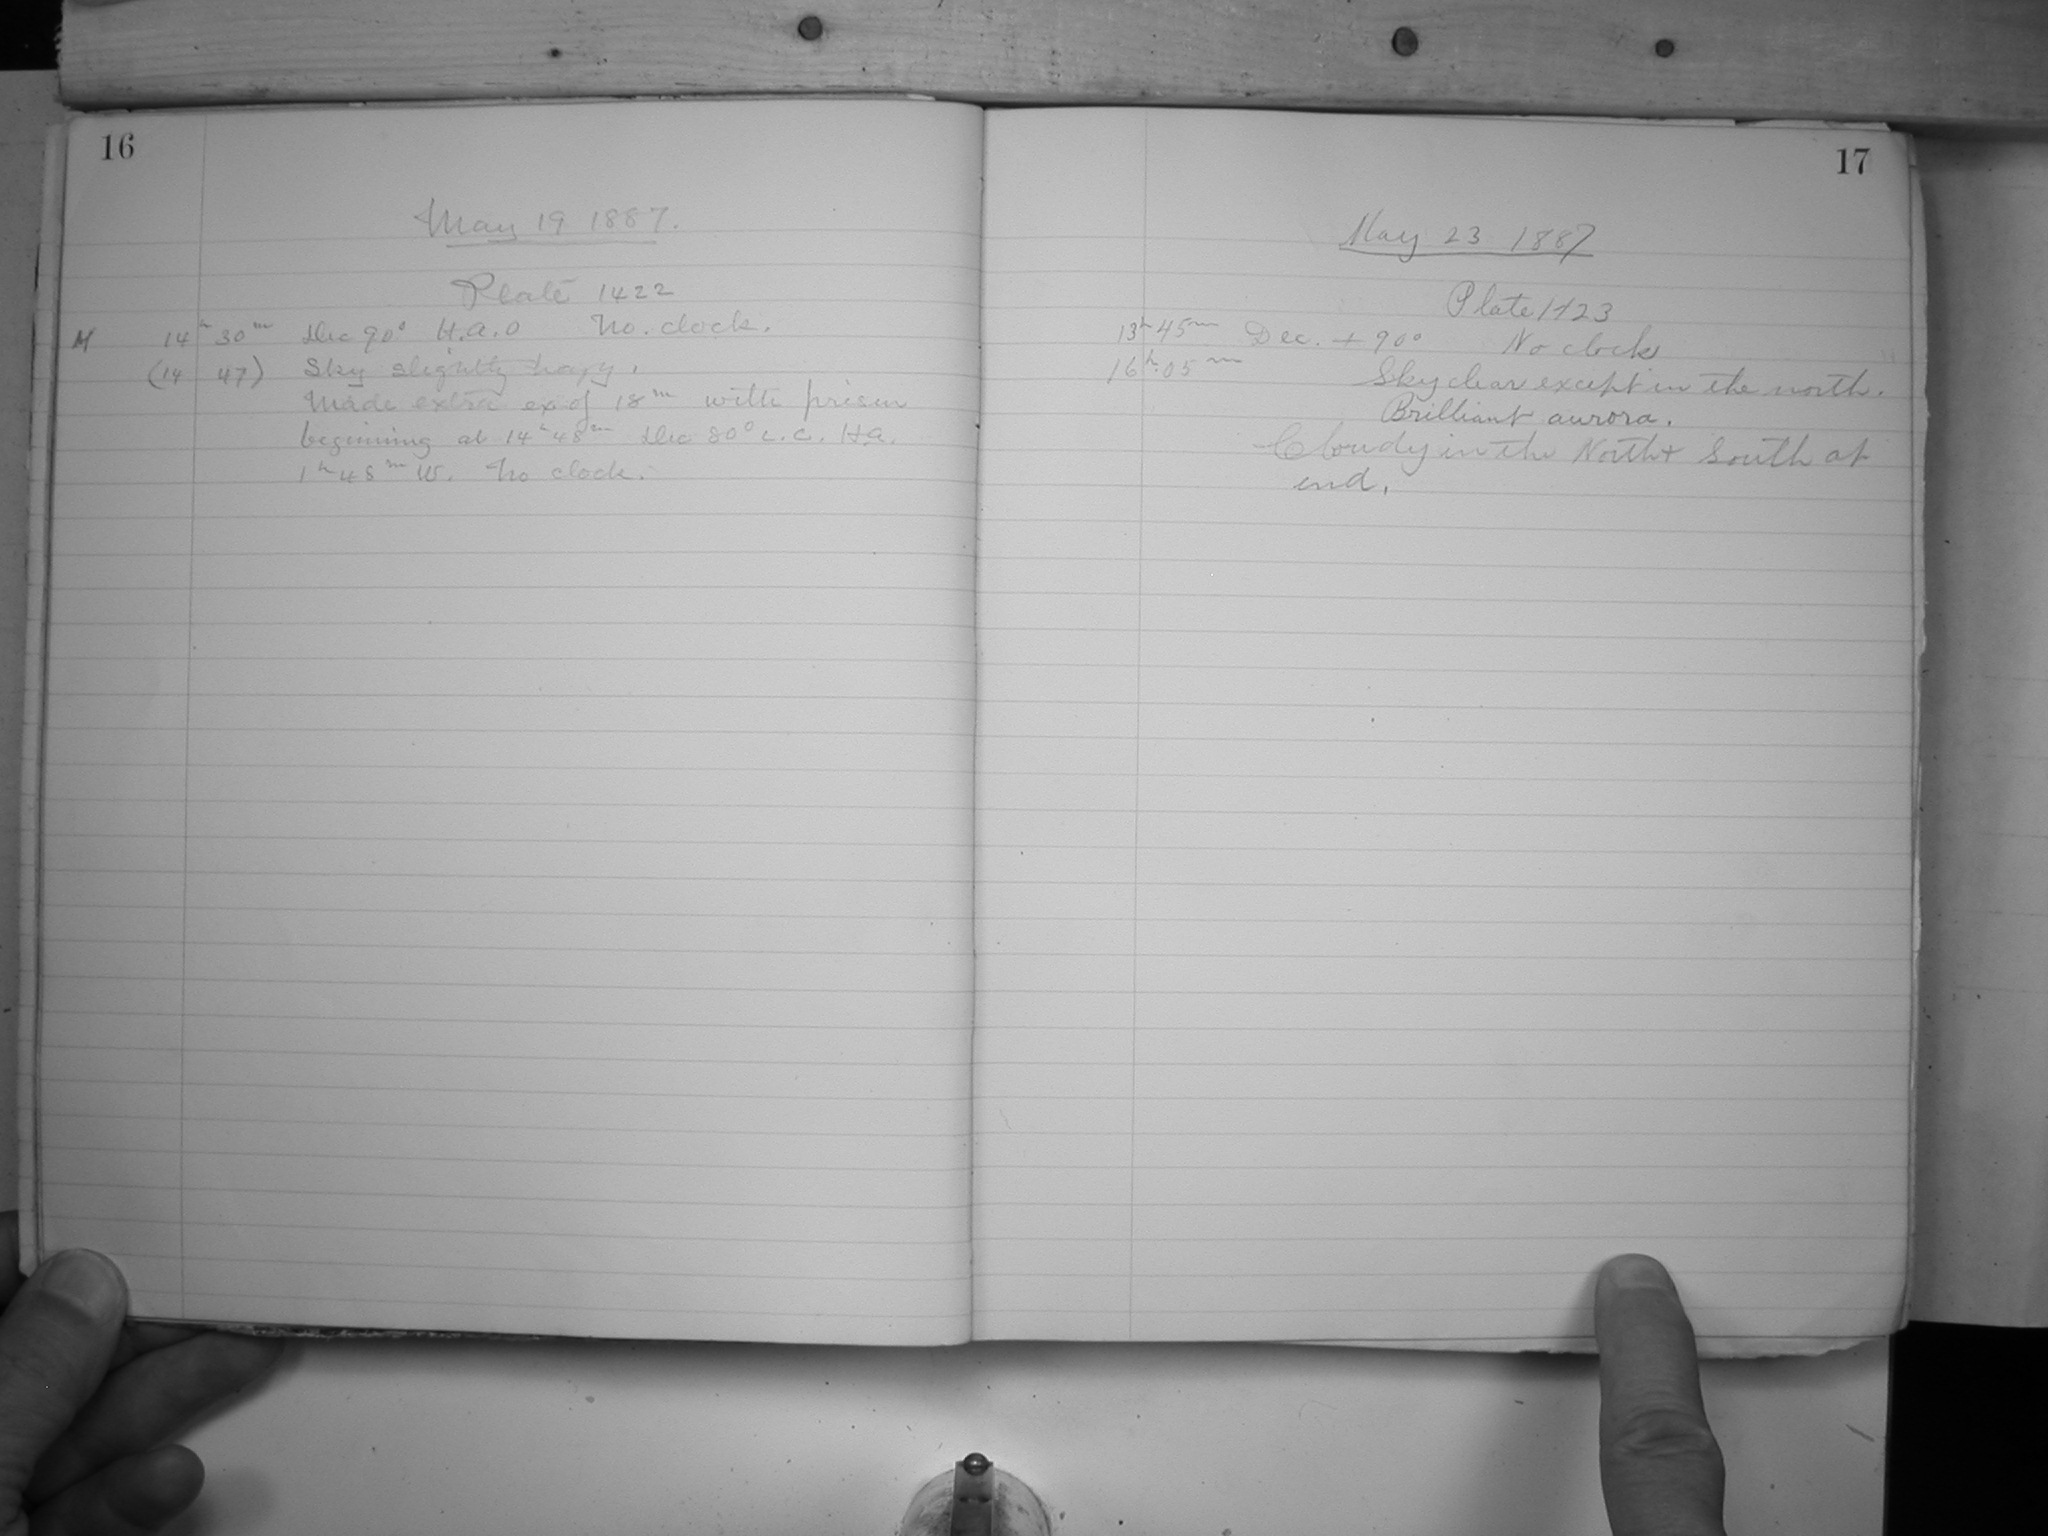 16
May 19 1887.
Plate 1422
M 14h 30m Dec 90° H.a. 0 No. clock.
(14 47) Sky slightly hazy.
Made extra ex of 18m with prism
beginning at 14h 48m Dec 80° L.C. H.a.
1h 48m W. No clock.
17
May 23 1887
Plate 1423
13h 45m Dec. + 90° No clock
16h.05m Sky clear except in the north.
Brilliant aurora.
Cloudy in the North + South at
end.